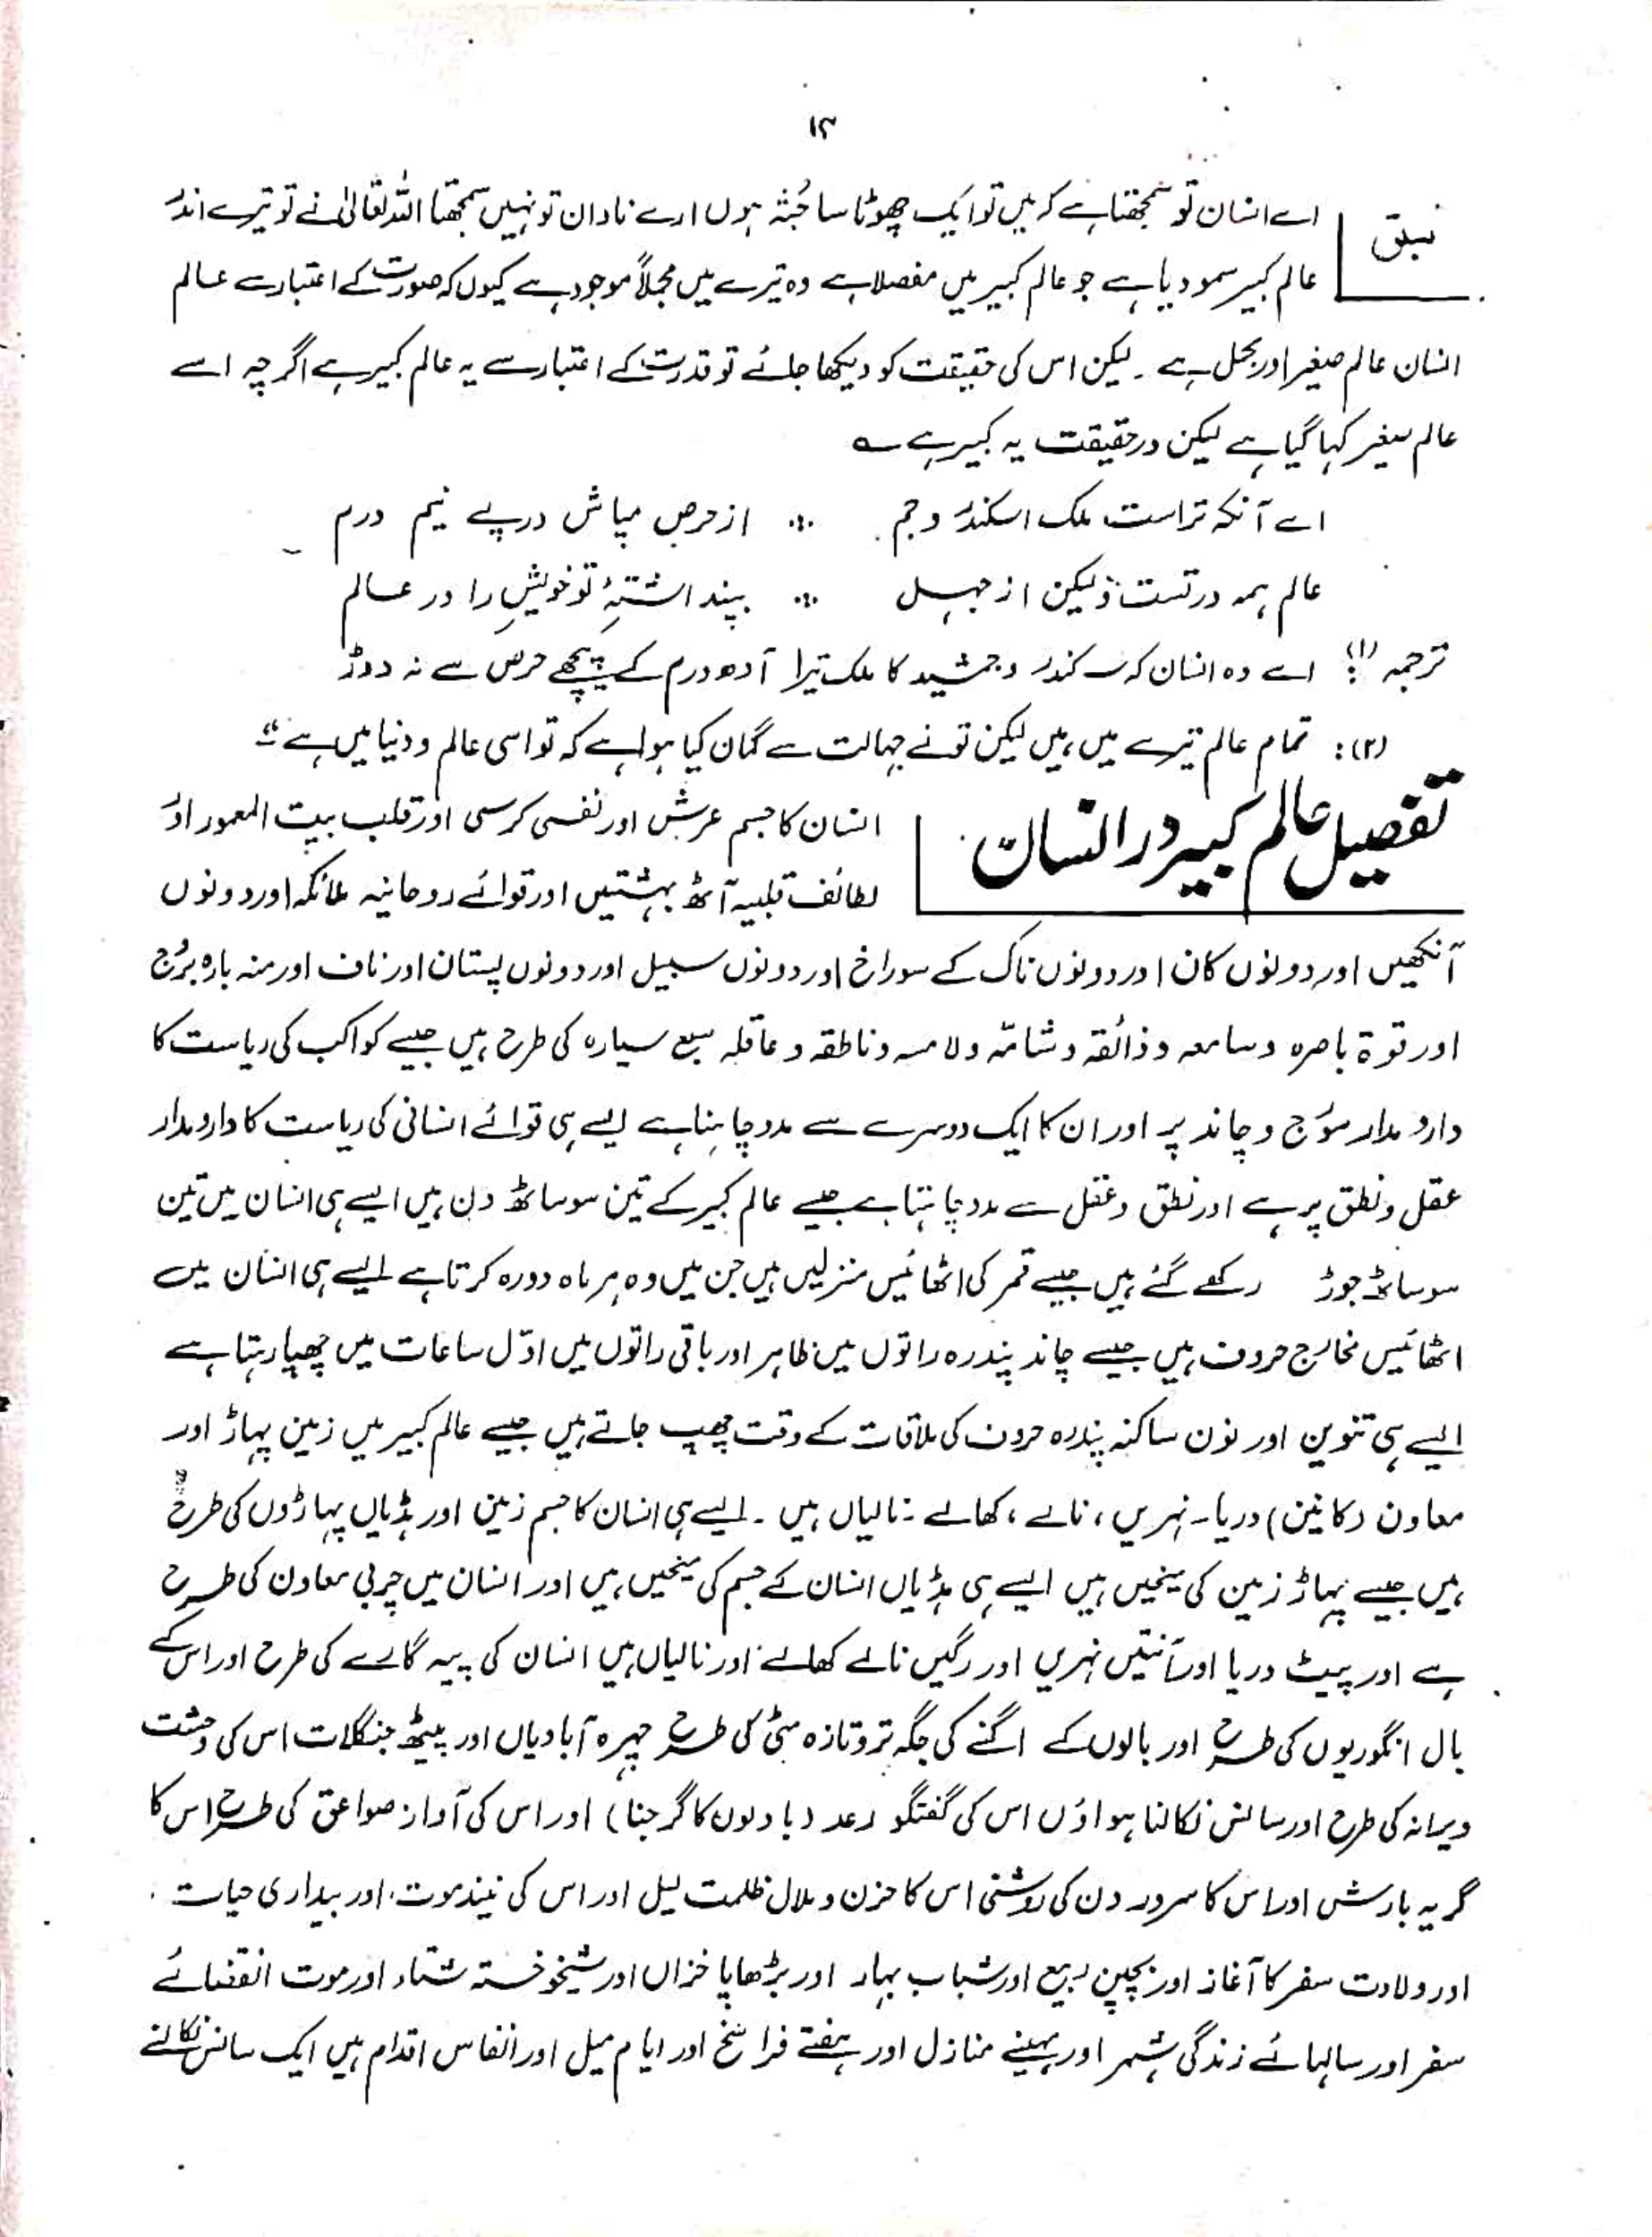 ۱۳
سبق
اے انسان تو سمجھتا ہے کہ میں تو ایک چھوٹا سا جُثہ ہوں ارے نادان تو نہیں سمجھتا اللہ تعالیٰ نے تو تیرے اندر
عالم کبیر سمو دیا ہے جو عالم کبیر میں مفصلا ہے وہ تیرے میں مجملاً موجود ہے کیوں کہ صورت کے اعتبار سے عالم
انسان عالم صغیر اور مجمل ہے ۔ لیکن اس کی حقیقت کو دیکھا جائے تو قدرت کے اعتبار سے یہ عالم کبیر ہے اگرچہ اسے
عالم صغیر کہا گیا ہے لیکن درحقیقت یہ کبیر ہے ؎
اے آنکہ تراست ملک اسکندر وجم ؞ از حرص مباش درپے نیم درم
عالم ہمہ درتست ولیکن از جہل ؞ پنداشتۂ تو خویش را در عالم
ترجمہ (۱): اے وہ انسان کہ سکندر وجمشید کا ملک تیرا آدھ درم کے پیچھے حرص سے نہ دوڑ
(۲): تمام عالم تیرے میں ہیں لیکن تو نے جہالت سے گمان کیا ہوا ہے کہ تو اسی عالم و دنیا میں ہے“
تفصیل عالم کبیر در انسان
انسان کا جسم عرش اور نفس کرسی اور قلب بیت المعمور اور
لطائف قلبیہ آٹھ بہشتیں اور قوائے روحانیہ ملائکہ اور دونوں
آنکھیں اور دونوں کان اور دونوں ناک کے سوراخ اور دونوں سبیل اور دونوں پستان اور ناف اور منہ بارہ برُج
اور قوۃ باصرہ وسامعہ وذائقہ وشامّہ ولامسہ وناطقہ وعاقلہ سبع سیارہ کی طرح ہیں جیسے کواکب کی ریاست کا
دارو مدار سوُرج و چاند پر اور ان کا ایک دوسرے سے مدد چاہنا ہے ایسے ہی قوائے انسانی کی ریاست کا دارومدار
عقل ونطق پر ہے اور نطق وعقل سے مدد چاہتا ہے جیسے عالم کبیر کے تین سو ساٹھ دن ہیں ایسے ہی انسان میں تین
سو ساٹھ جوڑ رکھے گئے ہیں جیسے قمر کی اٹھائیس منزلیں ہیں جن میں وہ ہر ماہ دورہ کرتا ہے ایسے ہی انسان میں
اٹھائیس مخارج حروف ہیں جیسے چاند پندرہ راتوں میں ظاہر اور باقی راتوں میں اوّل ساعات میں چھپا رہتا ہے
ایسے ہی تنوین اور نون ساکنہ پندرہ حروف کی ملاقات کے وقت چھپ جاتے ہیں جیسے عالم کبیر میں زمین پہاڑ اور
معاون (کانیں) دریا۔ نہریں ، نالے ، کھالے ۔ نالیاں ہیں ۔ ایسے ہی انسان کا جسم زمین اور ہڈیاں پہاڑوں کی طرح
ہیں جیسے پہاڑ زمین کی میخیں ہیں ایسے ہی ہڈیاں انسان کے جسم کی میخیں ہیں اور انسان میں چربی معاون کی طرح
ہے اور پیٹ دریا اور آنتیں نہریں اور رگیں نالے کھالے اور نالیاں ہیں انسان کی پیہ گارے کی طرح اور اس کے
بال انگوریوں کی طرح اور بالوں کے اگنے کی جگہ تروتازہ مٹی کی طرح چہرہ آبادیاں اور پیٹھ جنگلات اس کی وحشت
ویرانہ کی طرح اور سانس نکالنا ہواؤں اس کی گفتگو رعد (بادلوں کا گرجنا) اور اس کی آواز صواعق کی طرح اس کا
گریہ بارش اور اس کا سرور دن کی روشنی اس کا حزن وملال ظلمت لیل اور اس کی نیند موت اور بیداری حیات ۔
اور ولادت سفر کا آغاز اور بچپن ربیع اور شباب بہار اور بڑھاپا خزاں اور شیخوخستہ شتاء اور موت انقضائے
سفر اور سالہائے زندگی شہر اور مہینے منازل اور ہفتے فراسخ اور ایام میل اور انفاس اقدام ہیں ایک سانس نکالنے